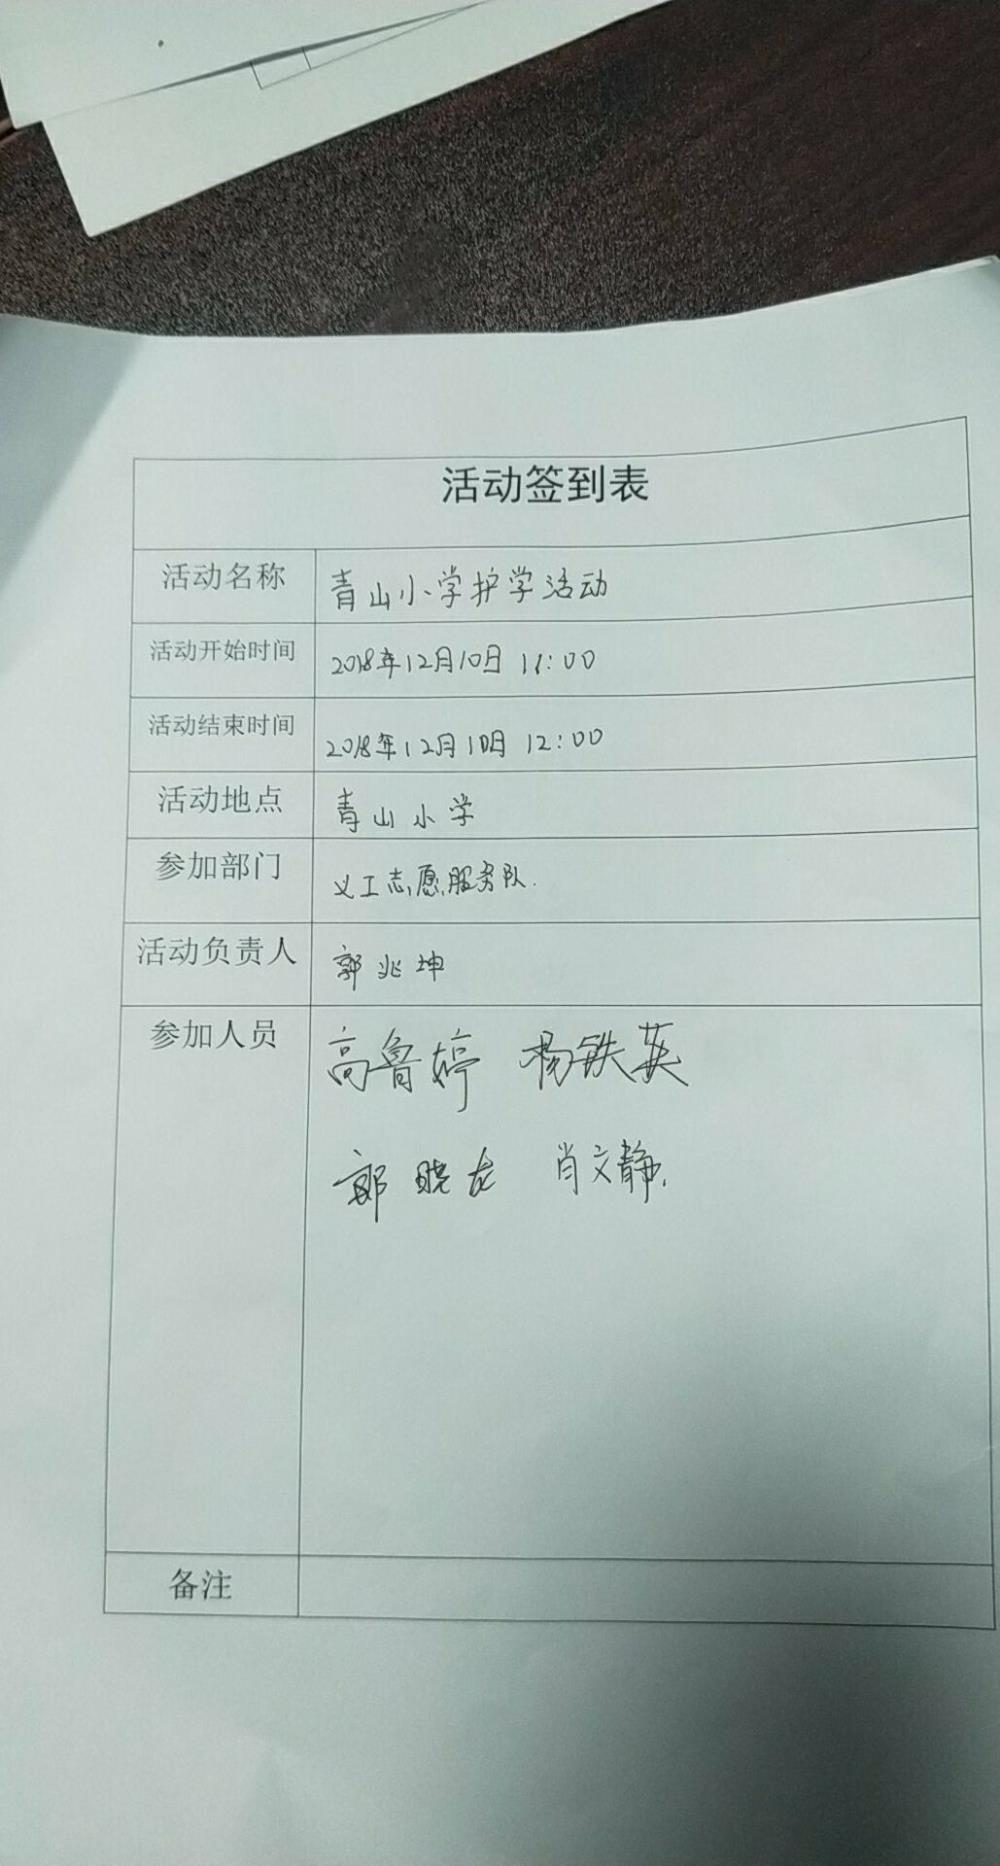 活动签到表
活动名称 青山小学护学活动
活动开始时间 2018年12月10日 11:00
活动结束时间 2018年12月10日 12:00
活动地点 青山小学
参加部门 义工志愿服务队.
活动负责人 郭兆坤
参加人员 高鲁婷 杨铁英
郭晓龙 肖文静
备注